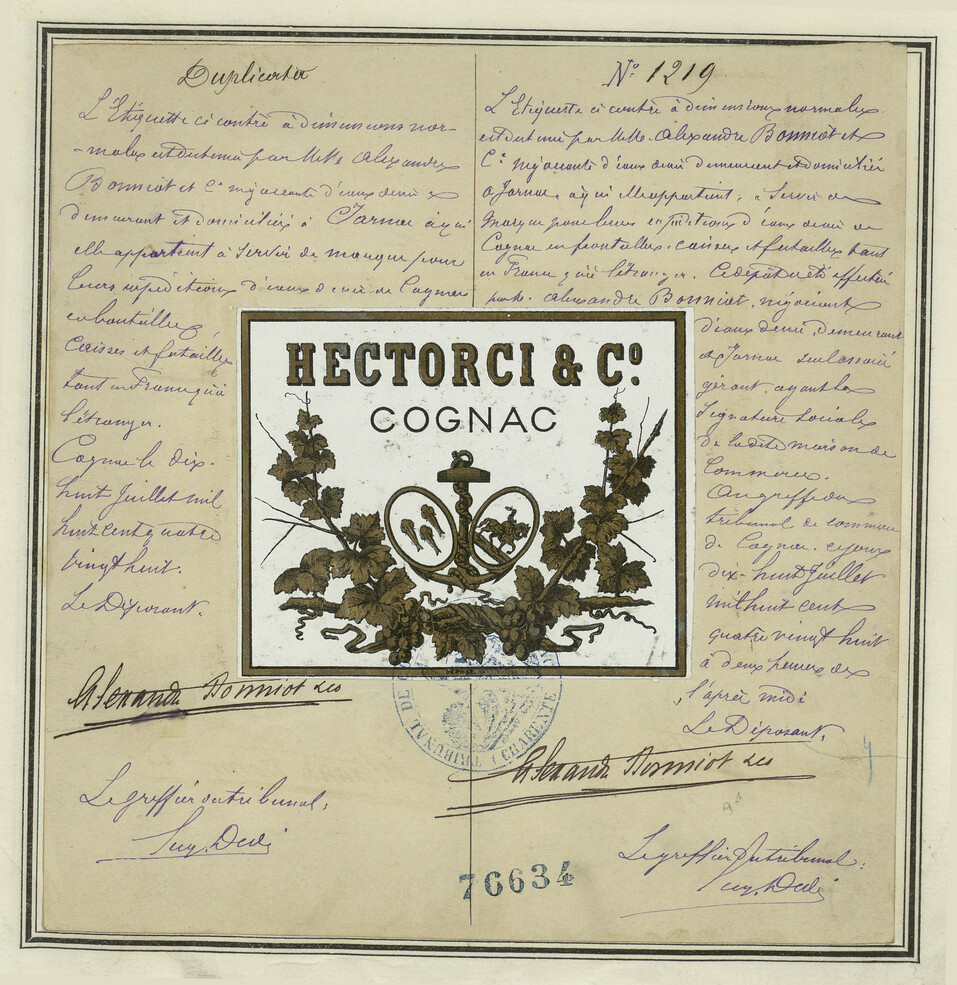 Duplicata
L'Etiquette ci contre à dimensions nor-
-males est destinée par MMrs Alexandre
Bonniot et Cie négociants d'eaux de vie
demeurant et domiciliés à Jarnac à qui
elle appartient à servir de marque pour
leurs expéditions d'eaux de vie de Cognac
en bouteilles
Caisses et futailles
tant en France qu'à
l'étranger.
Cognac le dix-
huit Juillet mil
huit cent quatre
vingt huit.
Le Déposant.
Alexandre Bonniot & Co
Le greffier du tribunal,
No 1219
L'Etiquette ci contre à dimensions normales
est destinée par MMrs Alexandre Bonniot et
Cie négociants d'eaux de vie demeurant et domiciliés
à Jarnac, à qui elle appartient, à servir de
marque pour leurs expéditions d'eaux de vie de
Cognac en bouteilles, caisses et futailles tant
en France qu'à l'étranger. Ce dépôt a été effectué
par M. Alexandre Bonniot, négociant
d'eaux de vie, demeurant
à Jarnac seul associé
gérant ayant la
signature sociale
de la dite maison de
Commerce.
Au greffe du
tribunal de commerce
de Cognac, ce jour
dix-huit Juillet
mil huit cent
quatre vingt huit
à deux heures de
l'après midi
Le Déposant,
Alexandre Bonniot & Co
Le greffier du tribunal:
HECTORCI & Co.
COGNAC
TRIBUNAL DE
CHARENTE
76634